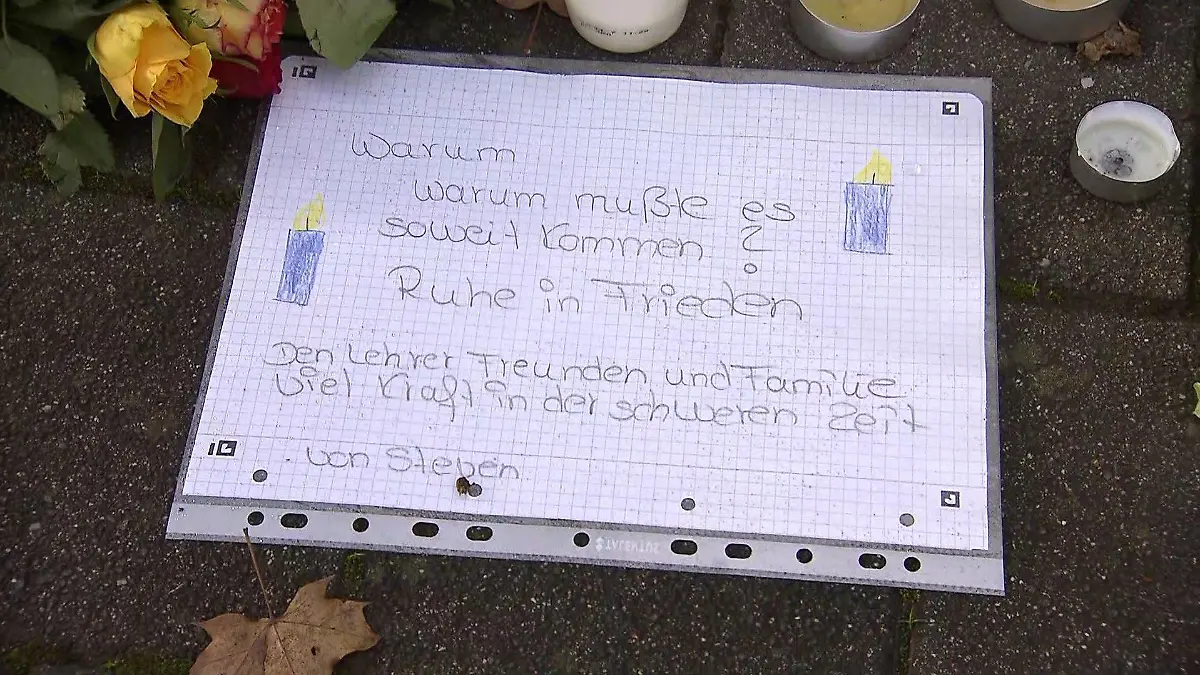 Warum
warum mußte es
soweit kommen ?
Ruhe in Frieden
Den Lehrer Freunden und Familie
viel Kraft in der schweren Zeit
von Steven